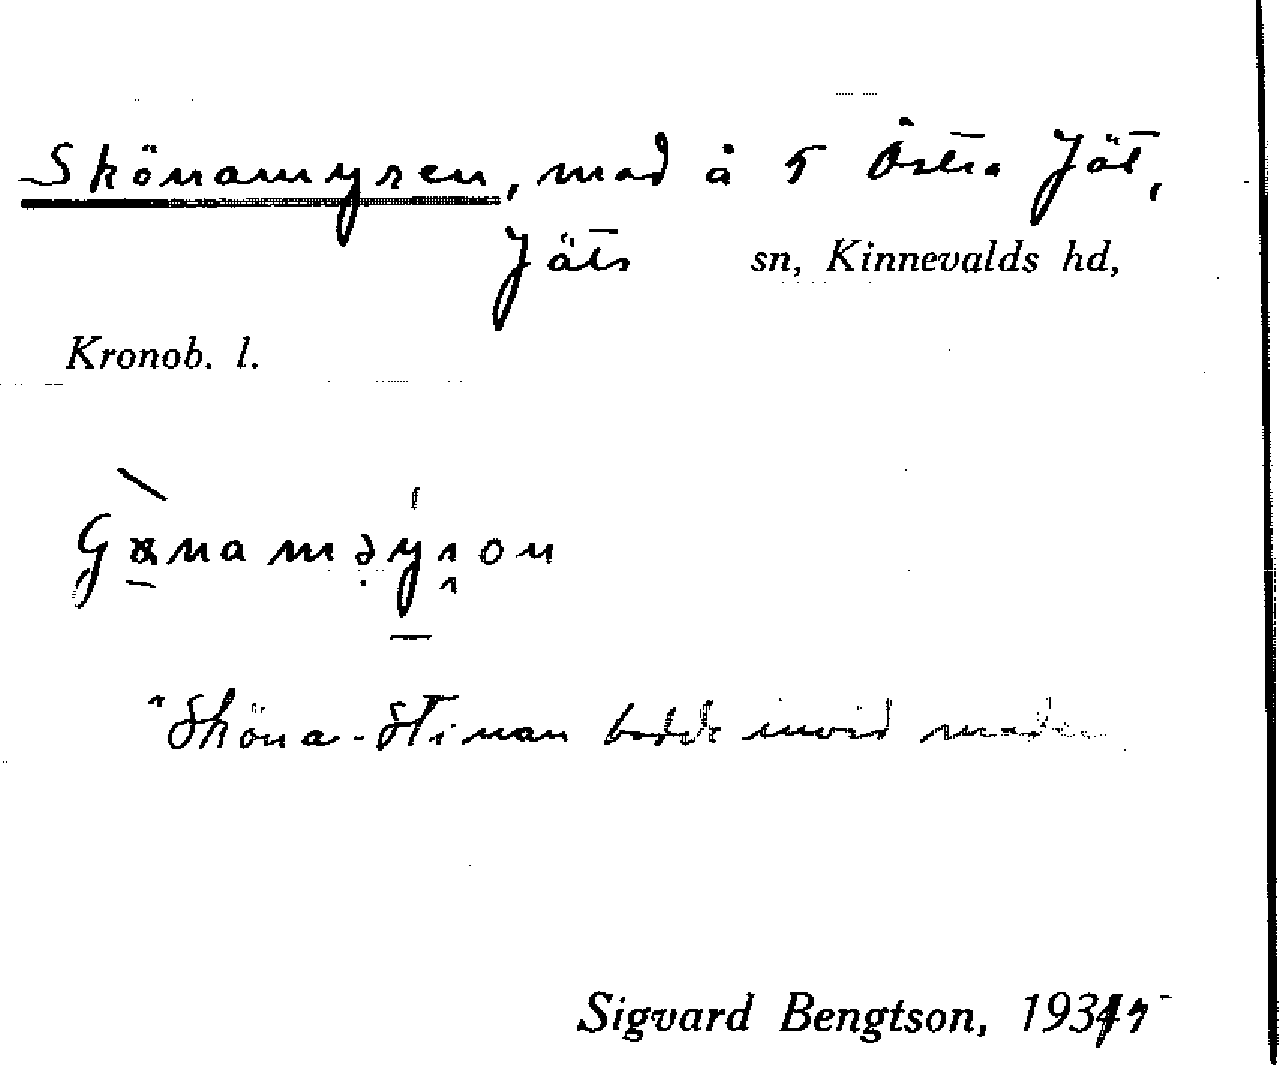 Skönamyren, mad å 5 Östra Jät,
Jäts sn, Kinnevalds hd,
Kronob. l.
"Sköna-Stinan bodde invid maden
Sigvard Bengtson, 193